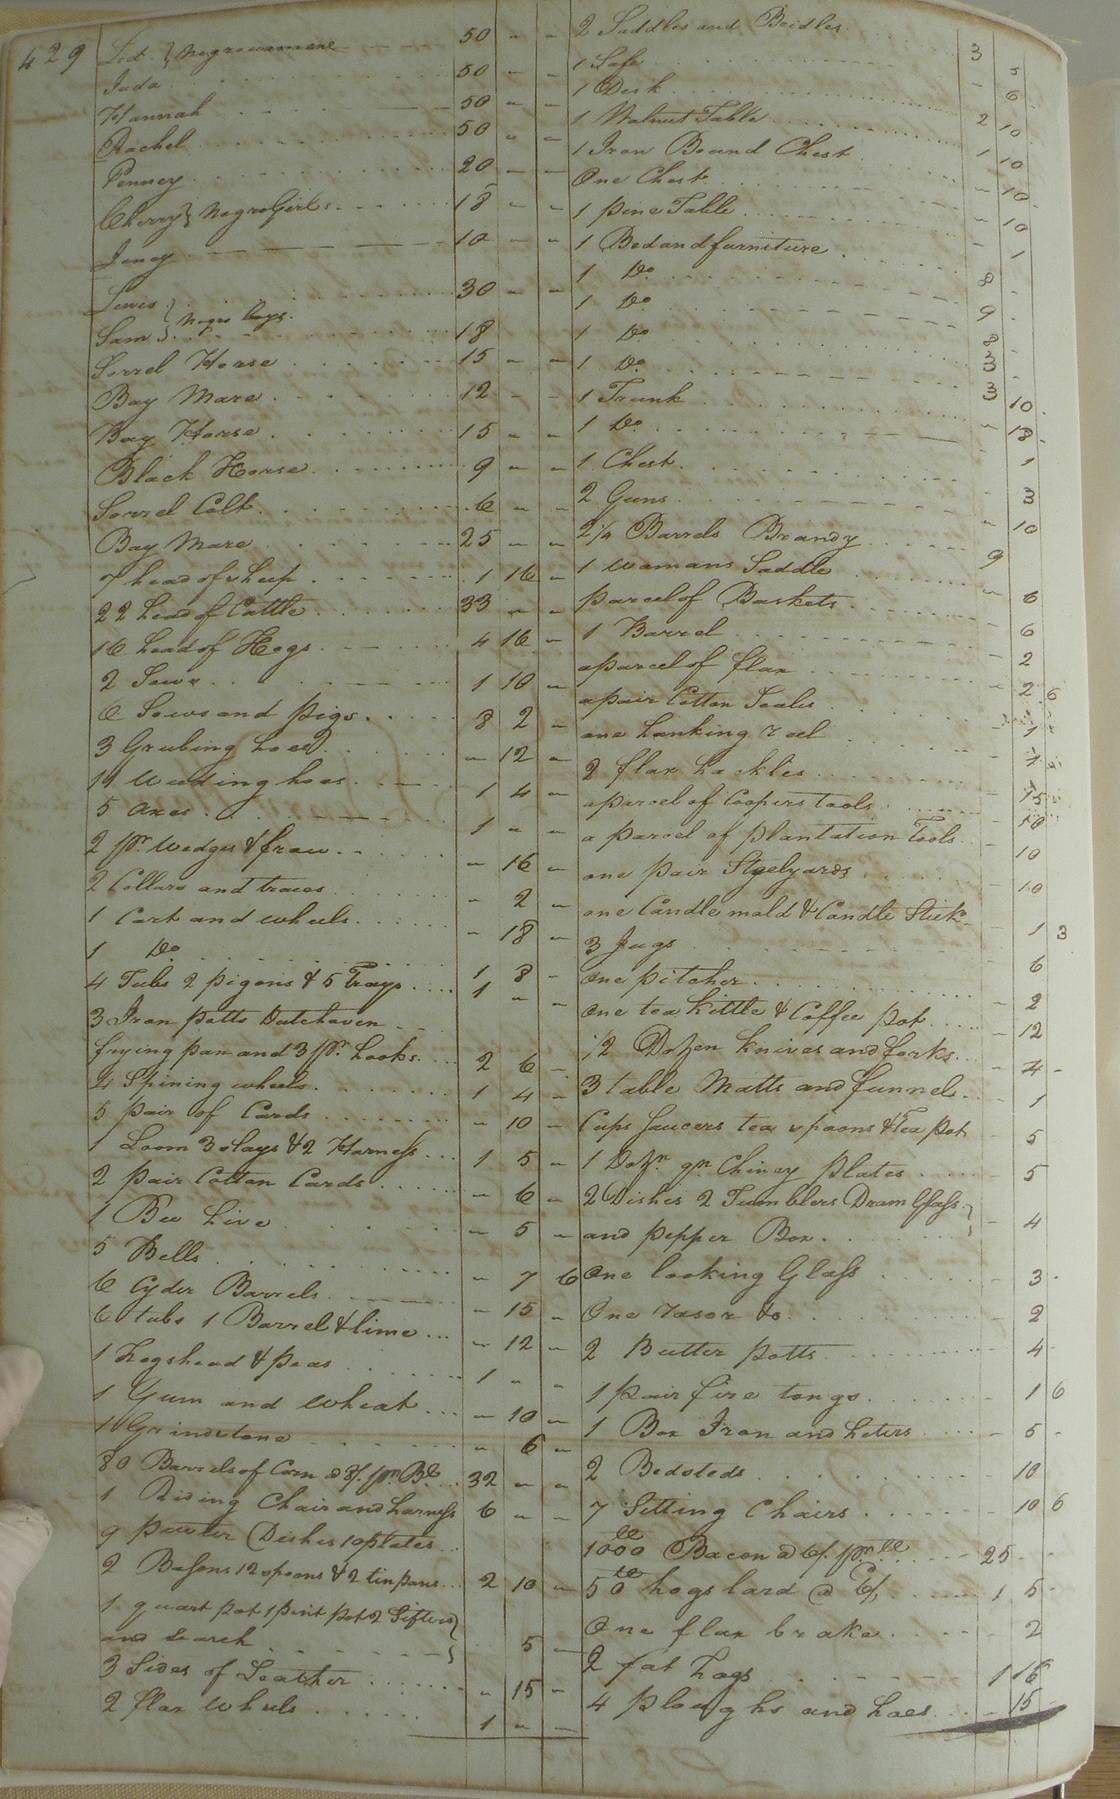 429
Negro women 50 - -
Juda 50 - -
Hannah 50 - -
Rachel 50 - -
Penney 20 - -
Cherry } Negro Girls 18 - -
Jeney 10 - -
Lewis } Negro boys 30 - -
Sam } 18
Sorrel Horse 15 - -
Bay Mare 12 - -
Bay Horse 15 - -
Black Horse 9 - -
Sorrel Colt 6 - -
Bay Mare 25 - -
7 head of sheep 1 16 -
22 head of Cattle 33 - -
16 head of Hogs 4 16 -
2 Sows 1 10 -
6 Sows and pigs 8 2 -
3 Grubing hoes - 12 -
weeding hoes 1 4 -
5 axes 1 - -
2 pr. wedges & frow - 16 -
2 Collars and traces - 2 -
1 Cart and wheels - 18 -
1 Do 1 8 -
4 Tubs 2 pigons & 5 Trays 1 - -
3 Iron potts Dutchoven
frying pan and 3 pr. hooks 2 6 -
4 Spining wheels 1 4 -
5 pair of Cards - 10 -
1 Loom 3 slays & 2 Harness 1 5 -
2 pair Cotton Cards - 6 -
1 Bee hive - 5 -
5 Bells - 7 6
6 Cyder Barrels - 15 -
6 tubs 1 Barrel & lime - 12 -
1 hogshead & peas 1 - -
1 Gum and wheat - 10 -
1 Grindstone - 6 -
80 Barrels of Corn @ 8/. pr. Bl 32 - -
1 Riding Chair and harness 6 - -
9 pewter Dishes 10 plates
2 Basons 12 spoons & 2 tin pans 2 10 -
1 quart pot 1 pint pot 2 Sifters }
and search } 5 -
3 Sides of Leather - 15 -
2 flax wheels 1 - -
2 Saddles and Bridles 3
1 Safe - 5
1 Desk 2 6
1 Walnut Table 1 10
1 Iron Bound Chest - 10
One Chest - 10
1 pine Table - 10
1 Bed and furniture 1
1 Do 8 -
1 Do 9 -
1 Do 8 -
1 Do 3 -
1 Trunk 3 10
1 Do - 18 -
1 Chest 1
2 Guns 3
2 1/4 Barrels Brandy - 10
1 womans Saddle 9
parcel of Baskets - 6
1 Barrel 6
a parcel of flax - 2
a pair Cotton Scales - 2 6
one hanking reel
2 flax hackles
a parcel of Coopers tools 15
a parcel of plantation Tools 10
one pair Stgelyards 10
one Candle mold & Candle Stick 10
3 Jugs - 1 3
One pitcher 6
One tea kittle & Coffee pot - 2
1/2 Dozen knives and forks - 12
3 table Matts and funnel - 4 -
Cups Saucers tea spoons & Tea pot 1
1 Dozn. gn Chiney plates 5
2 Dishes 2 Tumblers Dram Glass }
and pepper Box } - 4
One looking Glass 3 -
One rasor &c 2
2 Butter potts 4 -
1 pair fire tongs - 1 6
1 Box Iron and heters - 5 -
2 Bedsteds 10
7 Sitting Chairs - 10 6
1000 lb Bacon @ 6/. pr. lb 25 - -
50 lb hogs lard @ 6/ 1 5 -
One flax brake 2
2 fat hogs 1 16
4 ploughs and hoes - 15 -